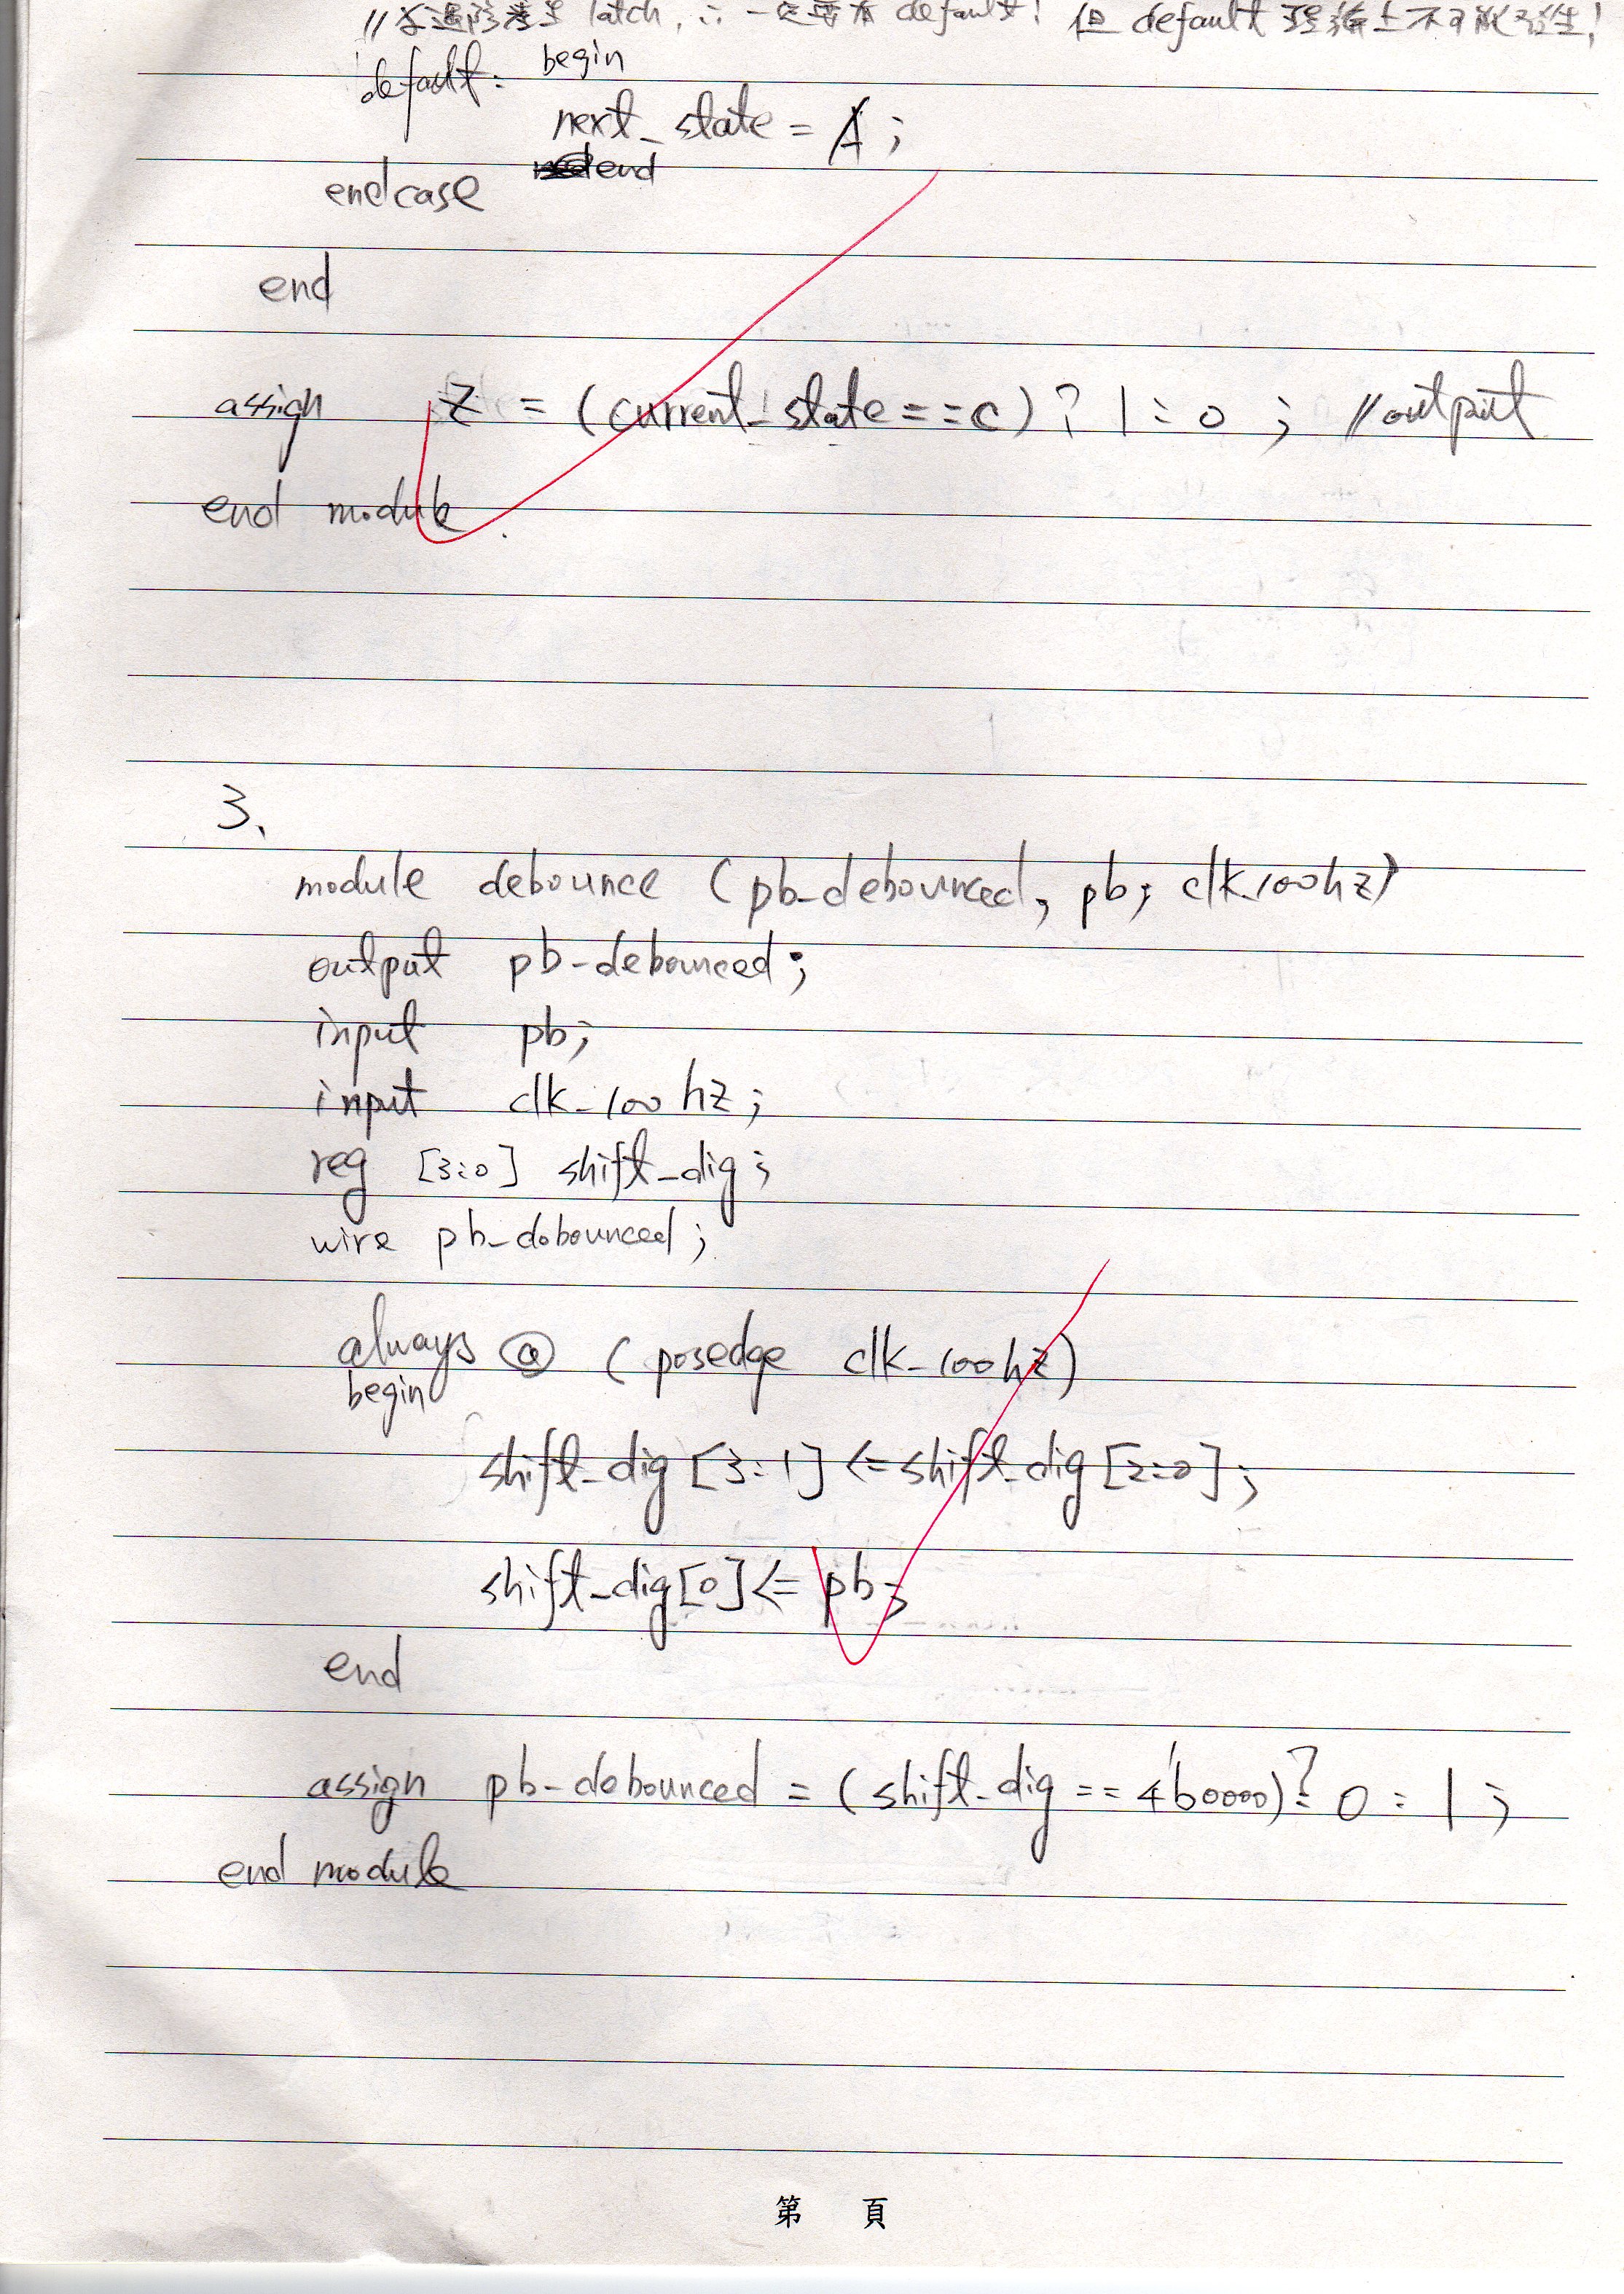 // 為避免產生 latch, ∴ 一定要有 default! 但 default 理論上不可能發生!
default: begin
next_state = A ;
end
endcase
end
assign Z = (current_state==C) ? 1 : 0 ; //output
end module
3.
module debounce (pb_debounced, pb, clk_100hz)
output pb-debounced;
input pb;
input clk_100hz;
reg [3:0] shift_dig;
wire pb_dobounced;
always @ (posedge clk_100hz)
begin
shift_dig [3:1] <= shift_dig [2:0];
shift_dig[0] <= pb;
end
assign pb-debounced = (shift_dig == 4'b0000)? 0 : 1 ;
end module
第 頁